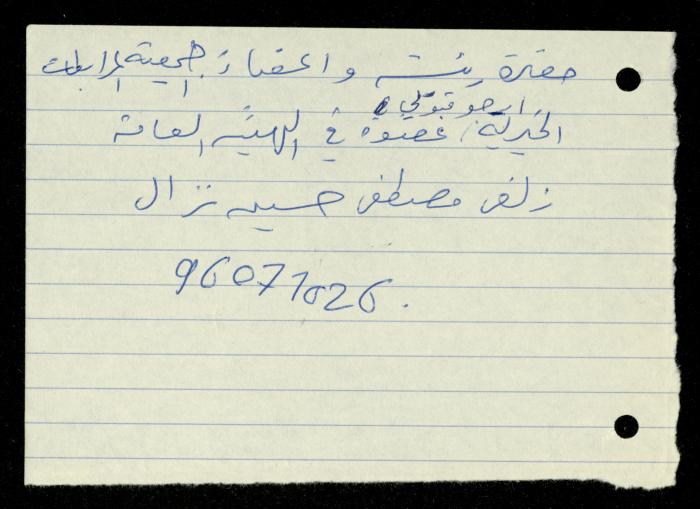 حضرة رئيسة واعضاء جمعية المرابطات
ارجو قبولي
الخيرية / عضوة في الهيئة العامة
زلفى مصطفى حسين نزال
96071026.